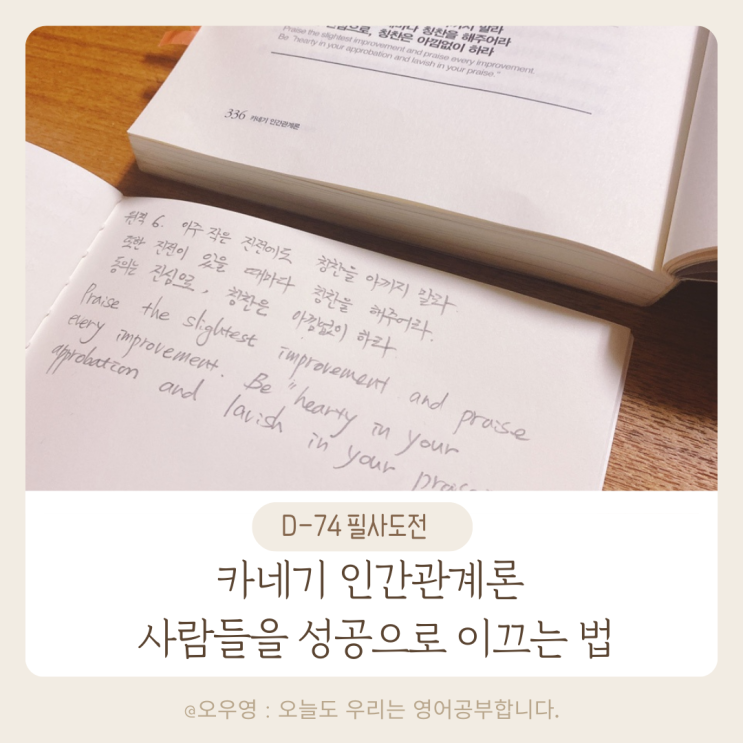 말라
칭찬을 해주어라
칭찬은 아낌없이 하라
Praise the slightest improvement and praise every improvement.
Be "hearty in your approbation and lavish in your praise."
336 카네기 인간관계론
원칙 6. 아주 작은 진전에도 칭찬을 아끼지 말라.
또한 진전이 있을 때마다 칭찬을 해주어라.
동의는 진심으로, 칭찬은 아낌없이 하라.
Praise the slightest improvement and praise
every improvement. Be "hearty in your
approbation and lavish in your
D-74 필사도전
카네기 인간관계론
사람들을 성공으로 이끄는 법
@오우영 : 오늘도 우리는 영어공부합니다.